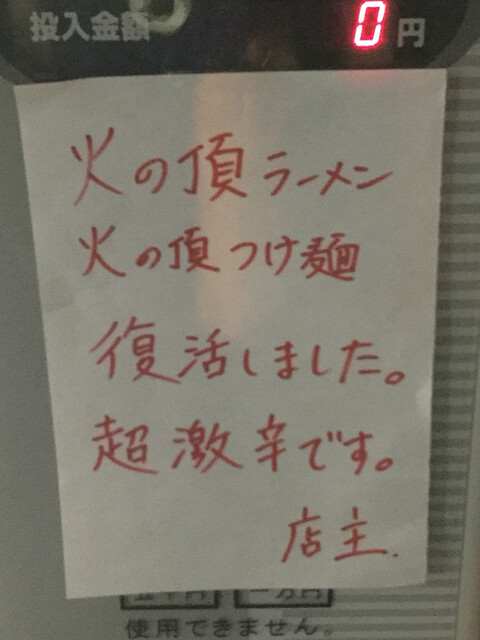 投入金額 0 円
火の頂ラーメン
火の頂つけ麺
復活しました。
超激辛です。
店主.
五千円 一万円
使用できません。